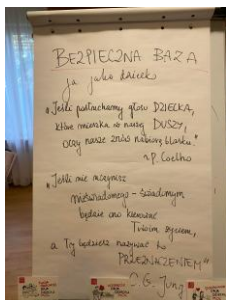 BEZPIECZNA BAZA
ja jako dziecko
"Jeśli posłuchamy głosu DZIECKA,
które mieszka w naszej DUSZY,
oczy nasze znów nabiorą blasku."
~P. Coelho
"Jeśli nie uczynisz
nieświadomego - świadomym
będzie ono kierować
Twoim życiem,
a Ty będziesz nazywać to
PRZEZNACZENIEM"
C.G. Jung